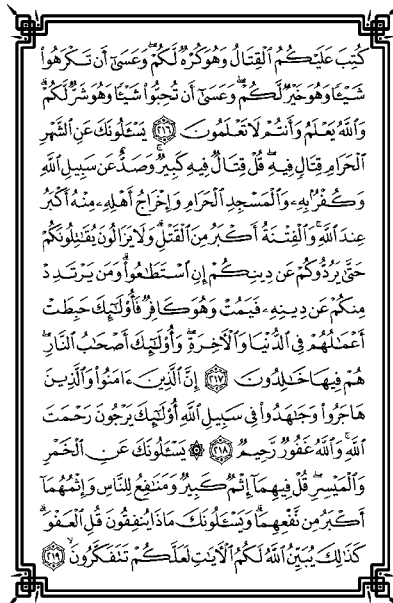 كُتِبَ عَلَيْكُمُ ٱلْقِتَالُ وَهُوَ كُرْهٌ لَّكُمْ ۖ وَعَسَىٰٓ أَن تَكْرَهُوا۟
شَيْـًٔا وَهُوَ خَيْرٌ لَّكُمْ ۖ وَعَسَىٰٓ أَن تُحِبُّوا۟ شَيْـًٔا وَهُوَ شَرٌّ لَّكُمْ ۗ
وَٱللَّهُ يَعْلَمُ وَأَنتُمْ لَا تَعْلَمُونَ ﴿٢١٦﴾ يَسْـَٔلُونَكَ عَنِ ٱلشَّهْرِ
ٱلْحَرَامِ قِتَالٍ فِيهِ ۖ قُلْ قِتَالٌ فِيهِ كَبِيرٌ ۖ وَصَدٌّ عَن سَبِيلِ ٱللَّهِ
وَكُفْرٌۢ بِهِۦ وَٱلْمَسْجِدِ ٱلْحَرَامِ وَإِخْرَاجُ أَهْلِهِۦ مِنْهُ أَكْبَرُ
عِندَ ٱللَّهِ ۚ وَٱلْفِتْنَةُ أَكْبَرُ مِنَ ٱلْقَتْلِ ۗ وَلَا يَزَالُونَ يُقَـٰتِلُونَكُمْ
حَتَّىٰ يَرُدُّوكُمْ عَن دِينِكُمْ إِنِ ٱسْتَطَـٰعُوا۟ ۚ وَمَن يَرْتَدِدْ
مِنكُمْ عَن دِينِهِۦ فَيَمُتْ وَهُوَ كَافِرٌ فَأُو۟لَـٰٓئِكَ حَبِطَتْ
أَعْمَـٰلُهُمْ فِى ٱلدُّنْيَا وَٱلْـَٔاخِرَةِ ۖ وَأُو۟لَـٰٓئِكَ أَصْحَـٰبُ ٱلنَّارِ ۖ
هُمْ فِيهَا خَـٰلِدُونَ ﴿٢١٧﴾ إِنَّ ٱلَّذِينَ ءَامَنُوا۟ وَٱلَّذِينَ
هَاجَرُوا۟ وَجَـٰهَدُوا۟ فِى سَبِيلِ ٱللَّهِ أُو۟لَـٰٓئِكَ يَرْجُونَ رَحْمَتَ
ٱللَّهِ ۚ وَٱللَّهُ غَفُورٌ رَّحِيمٌ ﴿٢١٨﴾ ۞ يَسْـَٔلُونَكَ عَنِ ٱلْخَمْرِ
وَٱلْمَيْسِرِ ۖ قُلْ فِيهِمَآ إِثْمٌ كَبِيرٌ وَمَنَـٰفِعُ لِلنَّاسِ وَإِثْمُهُمَآ
أَكْبَرُ مِن نَّفْعِهِمَا ۗ وَيَسْـَٔلُونَكَ مَاذَا يُنفِقُونَ قُلِ ٱلْعَفْوَ ۗ
كَذَٰلِكَ يُبَيِّنُ ٱللَّهُ لَكُمُ ٱلْـَٔايَـٰتِ لَعَلَّكُمْ تَتَفَكَّرُونَ ﴿٢١٩﴾